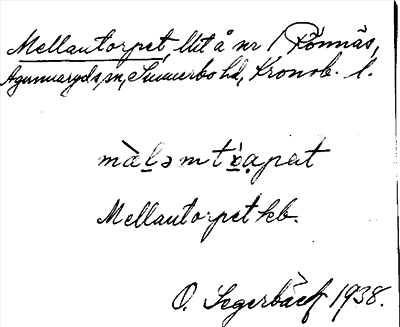 Mellantorpet, Utå nr 1 Rönnäs,
Agunnaryds sn, Sunnerbo hd, Kronob. l.
Mellantorpet kb.
O. Segerbäck 1938.